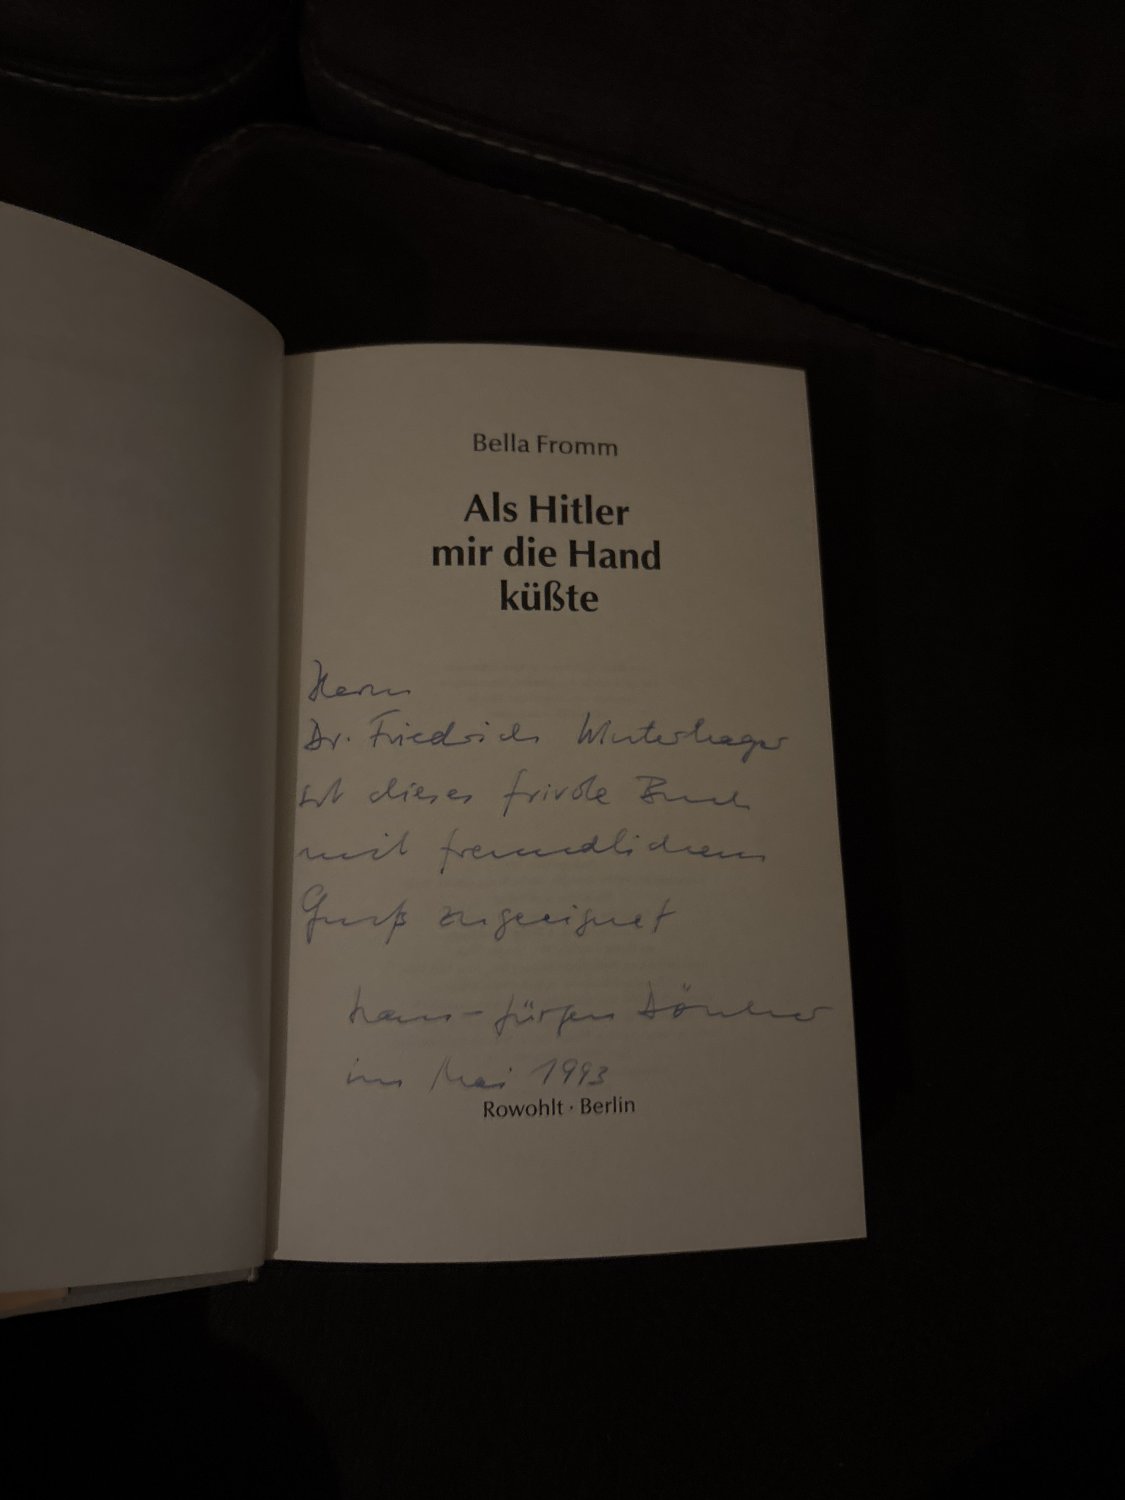 Bella Fromm
Als Hitler
mir die Hand
küßte
Herrn
Dr. Friedrich Winterhager
ist dieses frivole Buch
mit freundlichem
Gruß zugeeignet
Hans-Jürgen
im Mai 1993
Rowohlt · Berlin